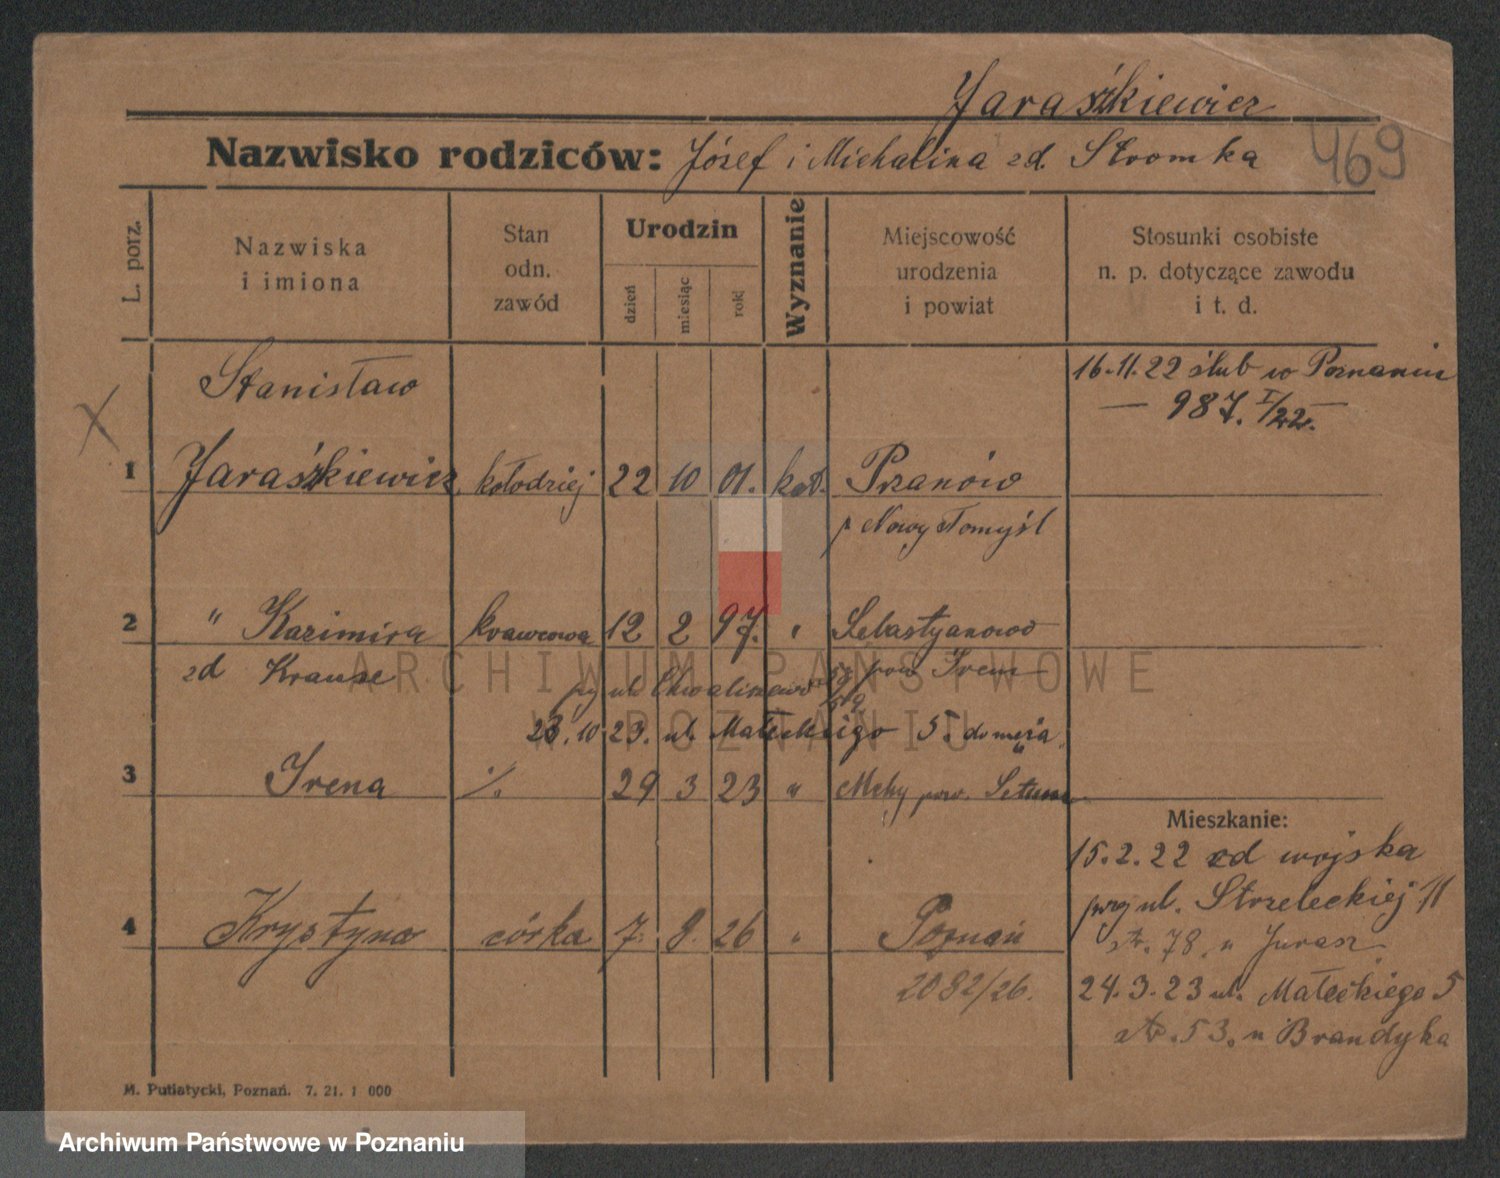 Jaraśzkiewicz
Nazwisko rodziców: Józef i Michalina zd. Stromka
469
L. porz.
Nazwiska
i imiona
Stan
odn.
zawód
Urodzin
dzień
miesiąc
rok
Wyznanie
Miejscowość
urodzenia
i powiat
Stosunki osobiste
n. p. dotyczące zawodu
i t. d.
Stanisław
16.11.22 ślub w Poznaniu
— 987. I/22. —
X
1 Jaraśzkiewicz kołodziej 22 10 01. kat. Pzanów
p Nowy Tomyśl
2 " Kazimira krawcowa 12 2 97. " Sebastyanowo
zd Krause pow Śrem
przy ul. Chwaliszewo
23.10 23. ul. Małeckiego 5. do męża
3 Irena ·/. 29 3 23 " Mchy pow.
Mieszkanie:
15.2.22 od wojska
przy ul. Strzeleckiej 11
str. 78. u Jurasz
4 Krystyna córka 7. 8. 26 " Poznań
2082/26.
24.3.23 ul. Małeckiego 5
str. 53. u Brandyka
M. Putiatycki, Poznań. 7. 21. 1 000
ARCHIWUM PAŃSTWOWE
W POZNANIU
Archiwum Państwowe w Poznaniu